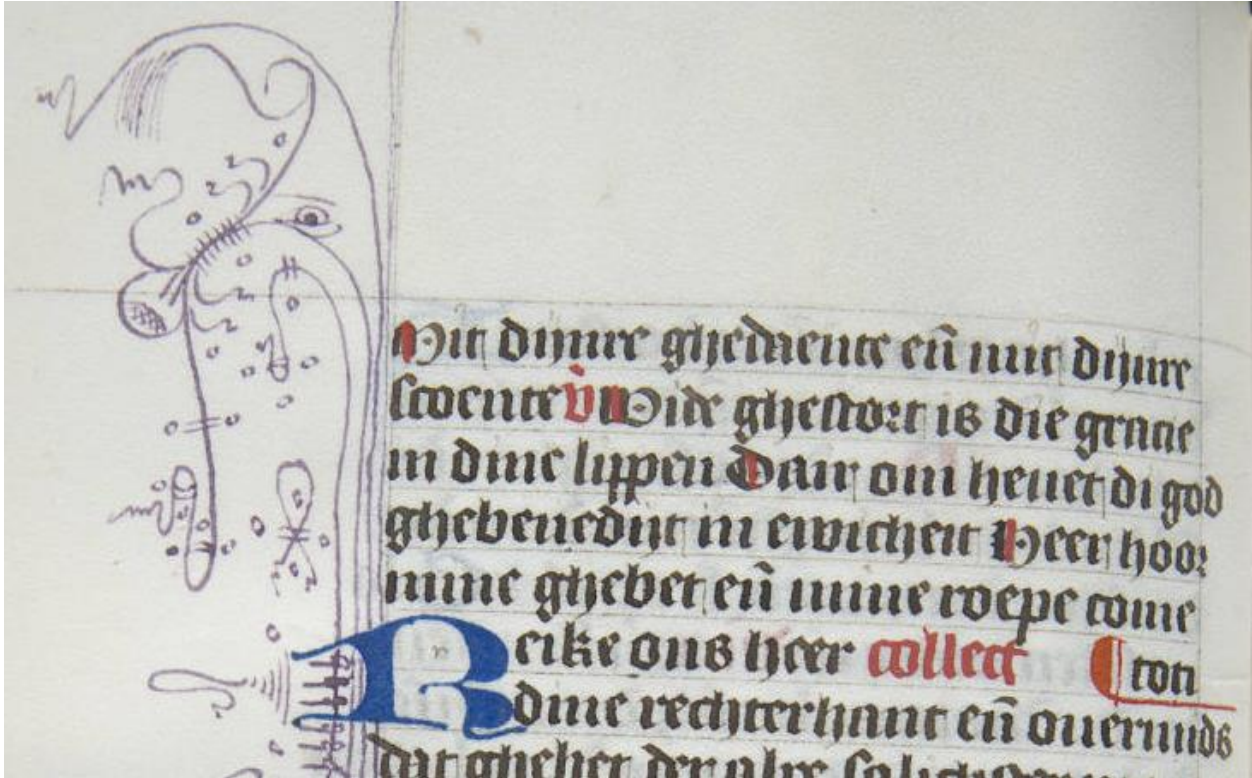 Mit dijnre ghedaente en̄ mit dijnre
scoente v̄ Wide ghestort is die gracie
in dine lippen Dair om heuet di god
ghebenedijt in ewicheit Heer hoor
mine ghebet en̄ mine roepe come
Reike ons heer collect ¶ toti
dine rechterhant en̄ ouermids
dat ghebet der alre